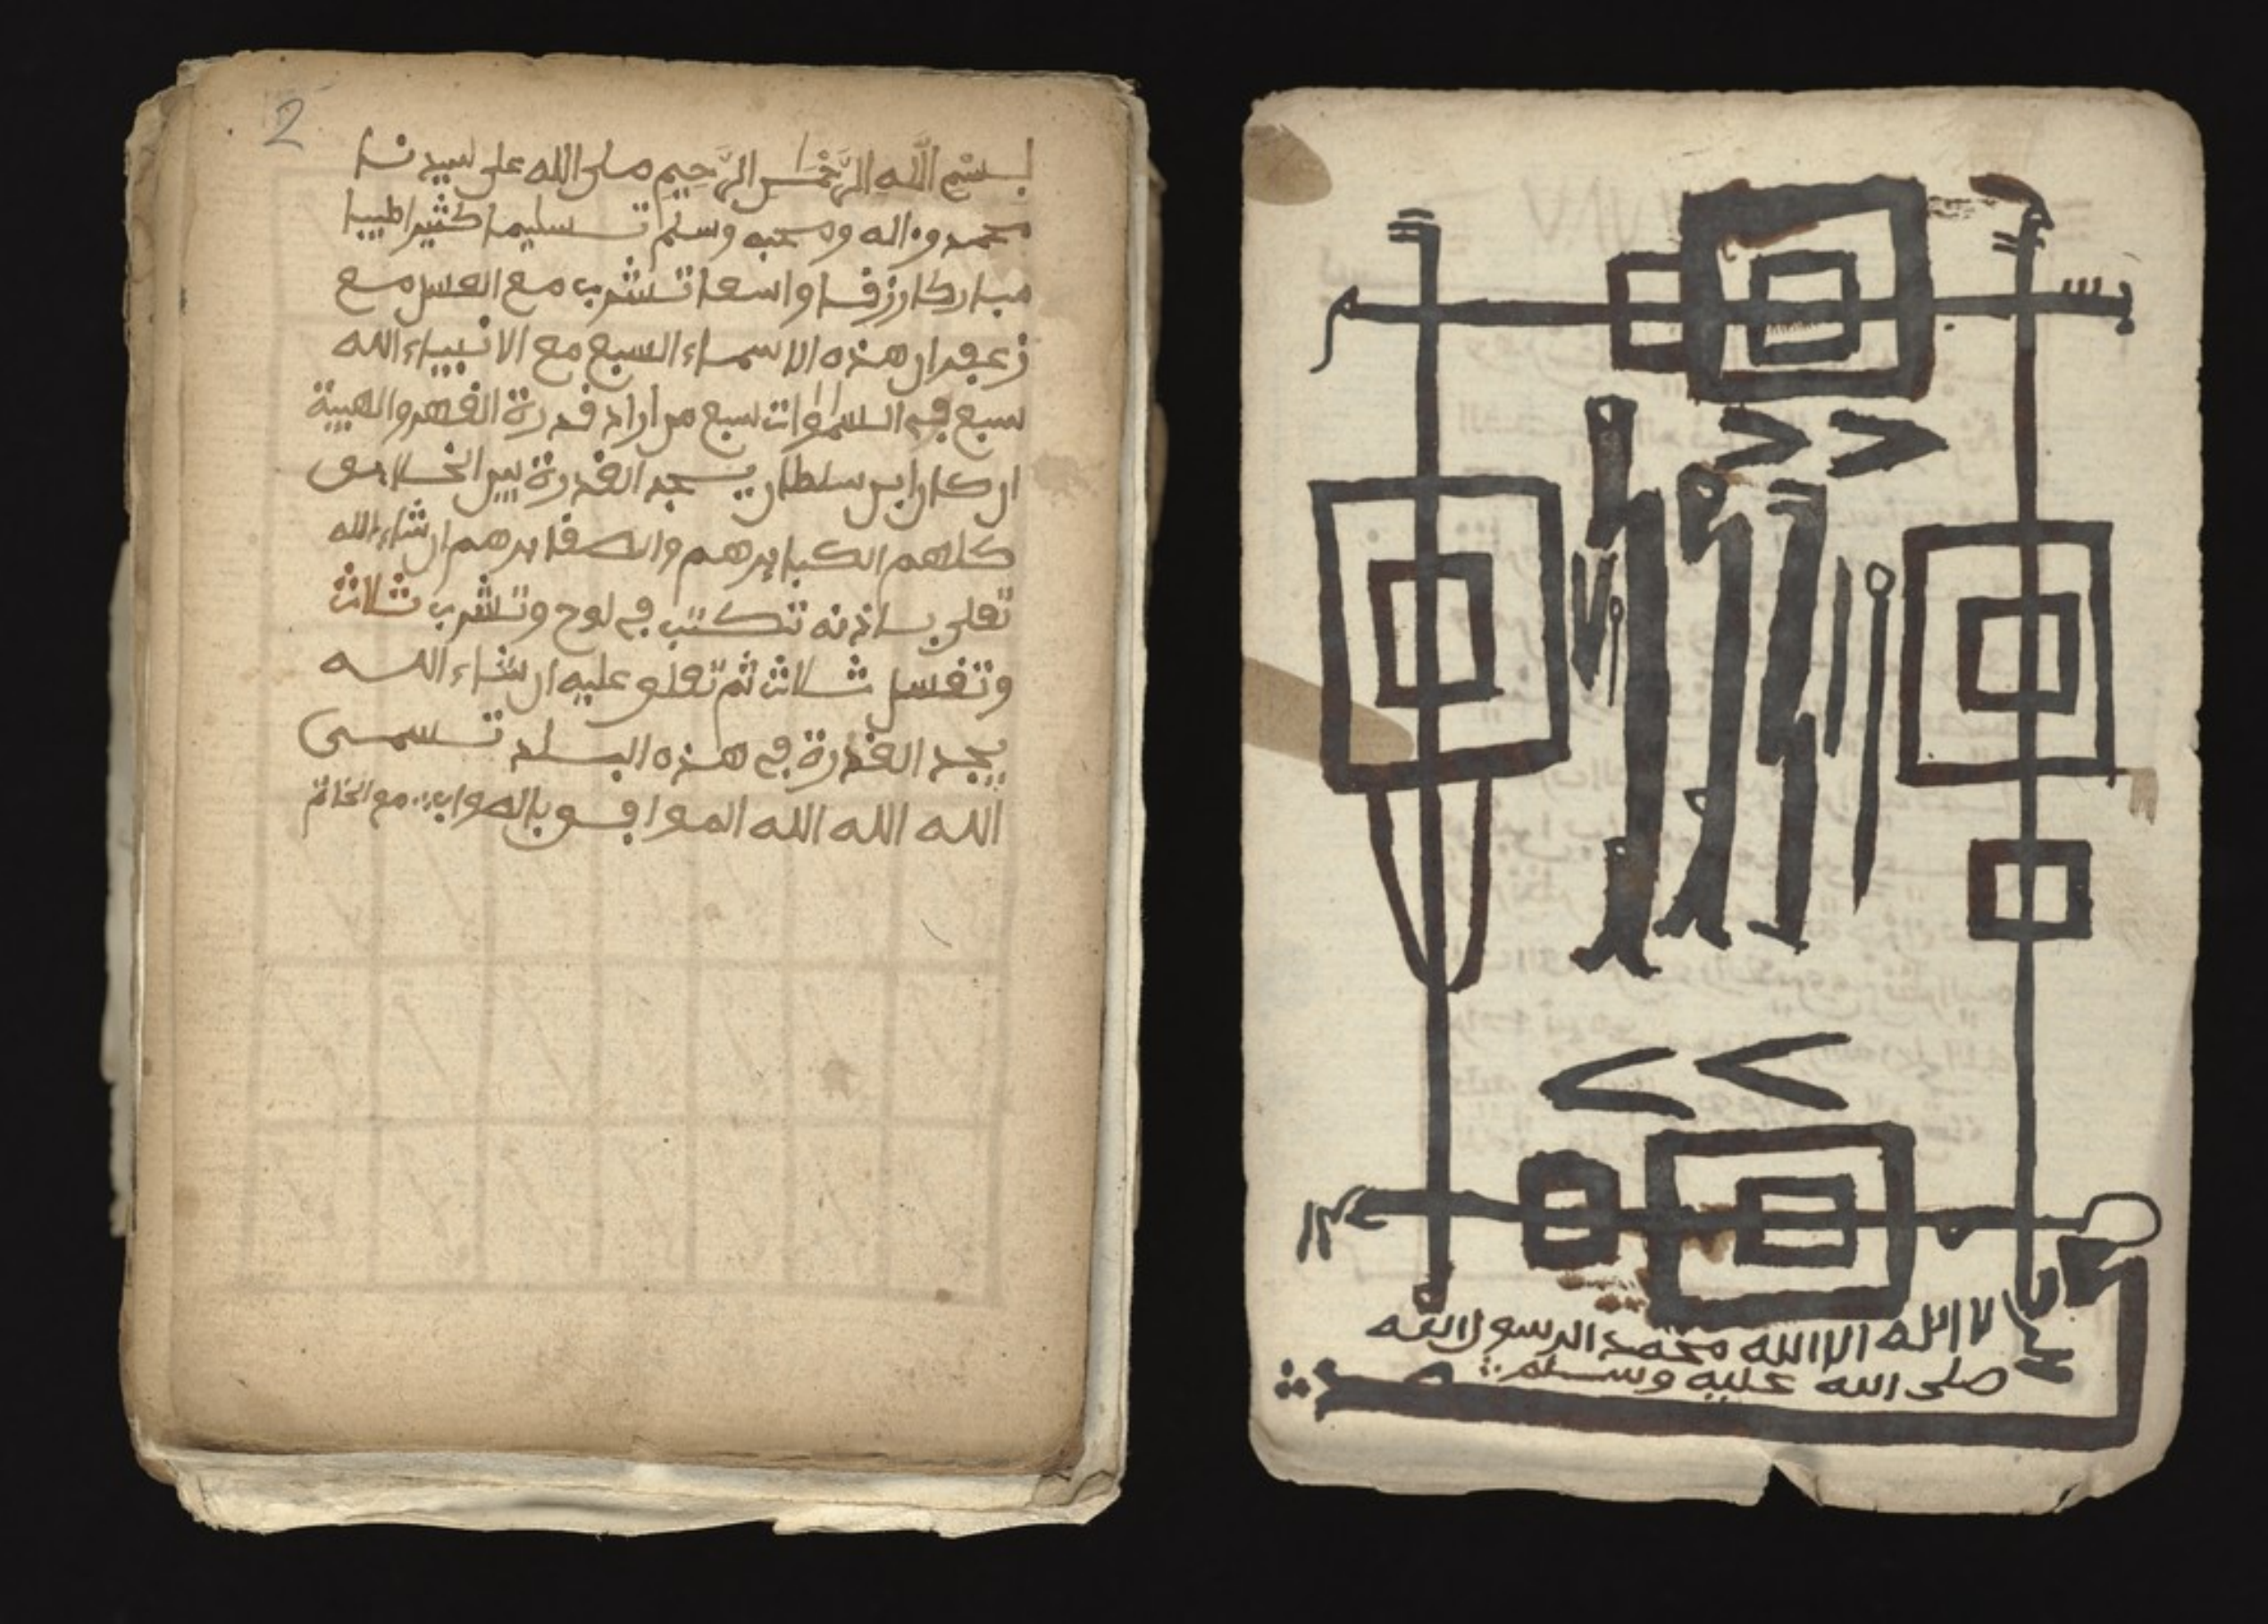 2
بسم الله الرَّحْمٰن الرَّحِيم صلى الله على سيدنا
محمد وءاله وصحبه وسلم تسليما كثيرا طيبا
مباركا رزقا واسعا تشرب مع العسل مع
زعفران هذه الاسماء السبع مع الانبياء الله
سبع في السموات سبع من اراد قدرة القهر والهيبة
ان كان ابن سلطان يجد القدرة بين الخلايق
كلهم الكبايرهم والصغايرهم ان شاء الله
تعلى باذنه تكتب في لوح وتشرب ثلاث
وتغسل ثلاث ثم تعلو عليه ان شاء الله
يجد القدرة في هذه البلد تسمى
الله الله الله الموافق بالصواب مع الخاتم
لا اله الا الله محمد الرسول الله
صلى الله عليه وسلم